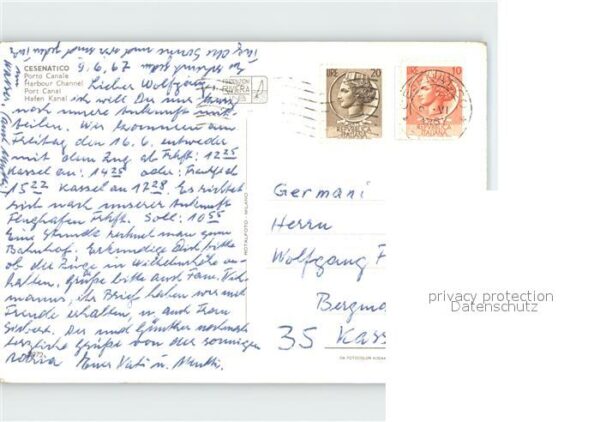 CESENATICO
Porto Canale
Harbour Channel
Port Canal
Hafen Kanal
9.6.67
Lieber Wolfgang,
ich will Dir nur kurz
noch unsere Ankunft mit-
teilen. Wir kommen am
Freitag den 16.6. entweder
mit dem Zug ab Frkft: 12 25
Kassel an: 14 25 oder: Frankft
15 22 Kassel an 17 28. Es richtet
sich nach unserer Ankunft
Flughafen Frkft. Soll: 10 55
Eine Stunde rechnet man zum
Bahnhof. Erkundige Dich bitte
ob die Züge in Wilhelmshöhe an-
halten, grüße bitte auch Fam.
ihr Brief haben wir mit
Freude erhalten, u. auch Frau
Dir und Günther nochmals
herzliche Grüße von der sonnigen
Adria Euer Vati u. Mutti.
ROTALFOTO - MILANO
RIVIERA
LIRE 20
REPVBBLICA
ITALIANA
LIRE 10
REPVBBLICA
ITALIANA
Germani
Herrn
Wolfgang F
Bergma
35 Kass
privacy protection
Datenschutz